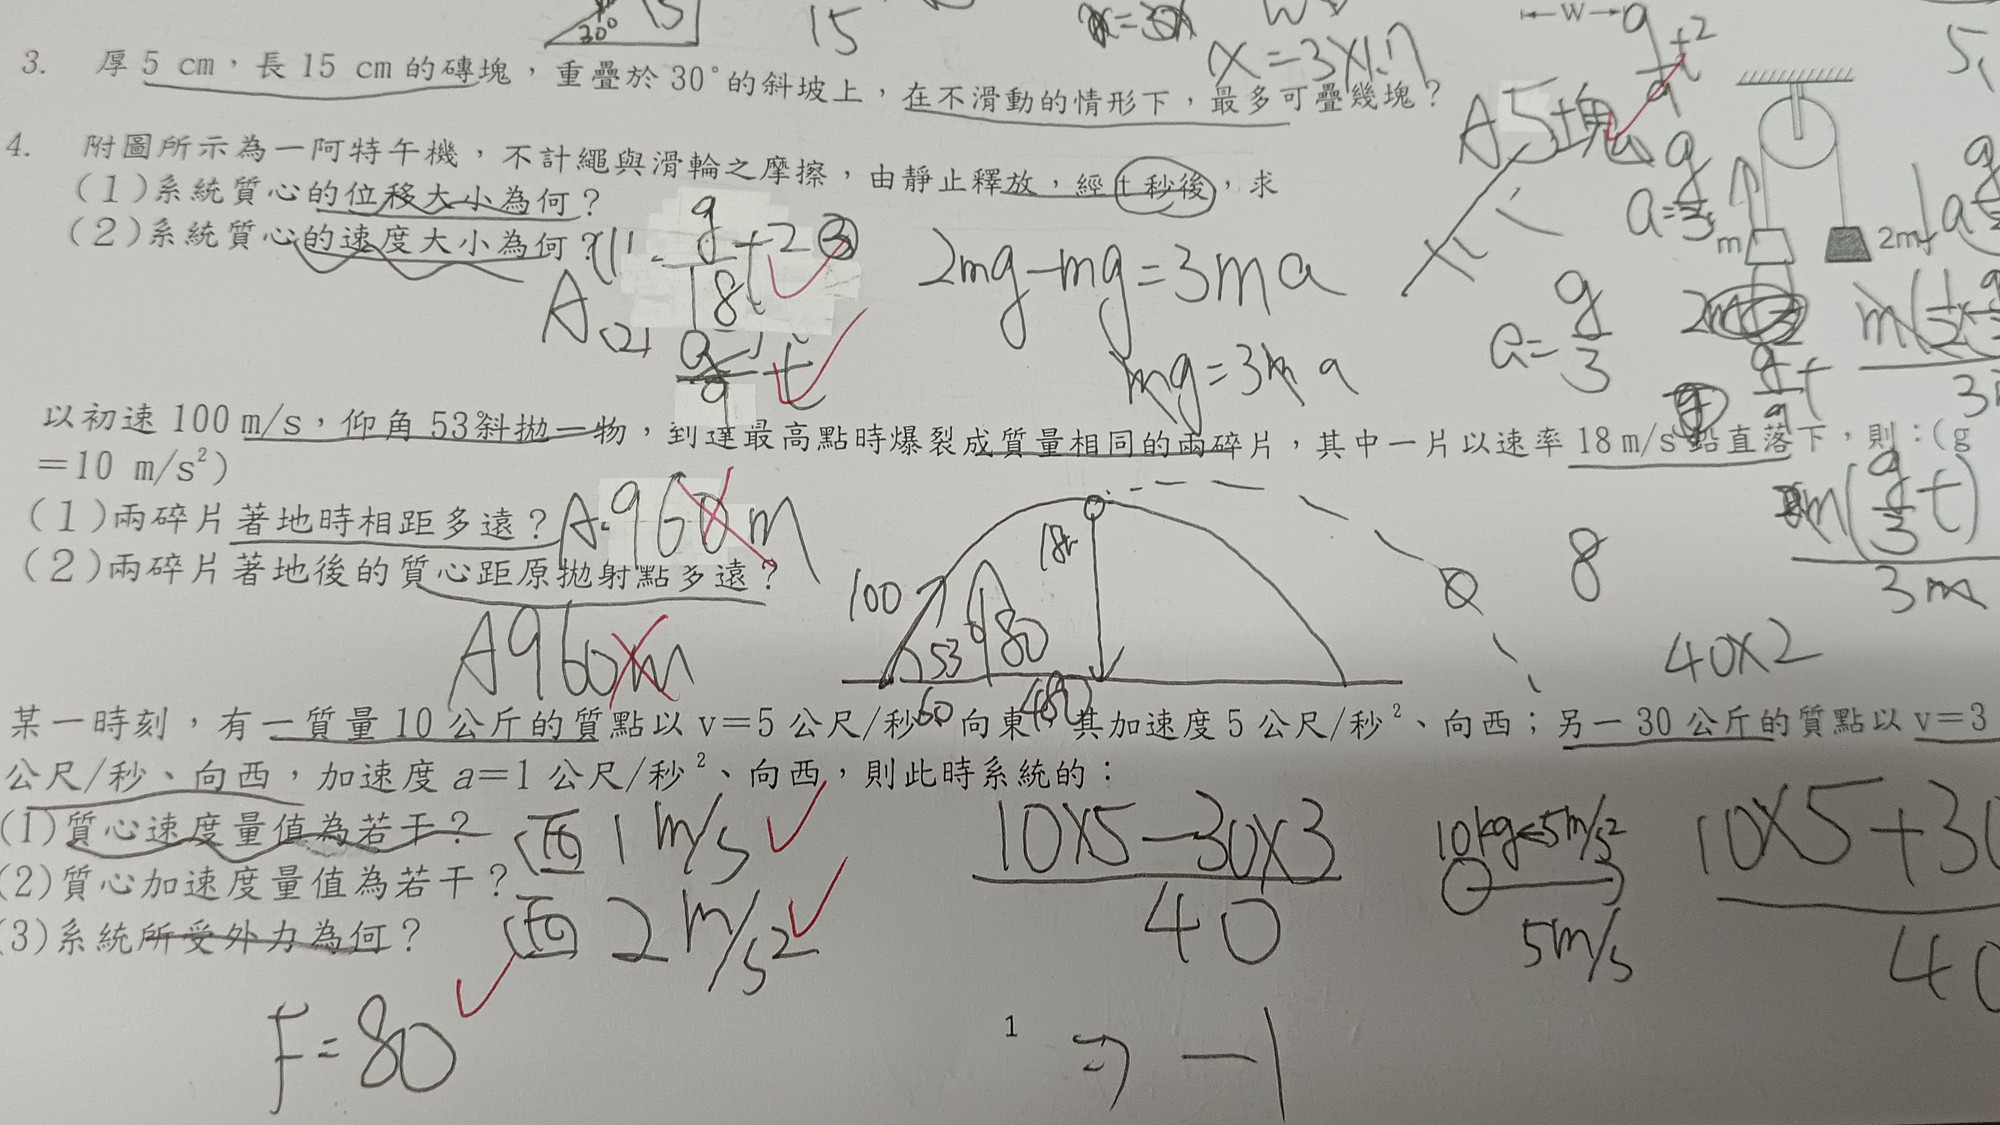 30°
15
x=3×1.7
W
3. 厚 5 cm，長 15 cm 的磚塊，重疊於 30°的斜坡上，在不滑動的情形下，最多可疊幾塊？
A 5塊
4. 附圖所示為一阿特午機，不計繩與滑輪之摩擦，由靜止釋放，經 t 秒後，求
(1)系統質心的位移大小為何？
(2)系統質心的速度大小為何？
A (1) g/18 t²
(2) g/9 t
2mg-mg=3ma
mg=3ma
a=g/3
a=g/3
m
2m
以初速 100 m/s，仰角 53°斜拋一物，到達最高點時爆裂成質量相同的兩碎片，其中一片以速率 18 m/s 鉛直落下，則：(g
=10 m/s²)
(1)兩碎片著地時相距多遠？
A.960m
(2)兩碎片著地後的質心距原拋射點多遠？
A960m
100
53
80
60
480
8
m(g/3 t)
3m
40×2
某一時刻，有一質量 10 公斤的質點以 v=5 公尺/秒 向東，其加速度 5 公尺/秒²、向西；另一 30 公斤的質點以 v=3
公尺/秒、向西，加速度 a=1 公尺/秒²、向西，則此時系統的：
(1)質心速度量值為若干？
西 1 m/s
(2)質心加速度量值為若干？
西 2 m/s²
(3)系統所受外力為何？
F=80
10×5-30×3
40
10kg 5m/s²
5m/s
10×5+30
40
1
⇒ -1